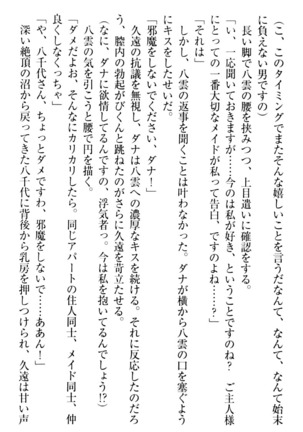 （こ、このタイミングでまたそんな嬉しいことを言うだなんて、なんて始末
に負えない男ですの）
　長い脚で八雲の腰を挟みつつ、上目遣いに確認をする。
「い、一応聞いておきますが……今のは私が好き、ということですのね？　ご主人様
にとっての一番大切なメイドが私って告白、ですのよね？」
「それは」
　しかし、八雲の返事を聞くことは叶わなかった。ダナが横から八雲の口を塞ぐよう
にキスをしたせいだ。
「邪魔をしないでください、ダナ！」
　久遠の抗議を無視し、ダナは八雲への濃厚なキスを続ける。それに反応したのだろ
う、膣内の勃起がびくんと跳ねたのがさらに久遠を苛立たせる。
（なに、ダナに欲情してるんですの、浮気者っ。今は私を抱いてるんでしょう!?）
　八雲の気を引こうと腰で円を描く。
「ダメだよお、そんなにカリカリしたら。同じアパートの住人同士、メイド同士、仲
良くしなくっちゃ」
「や、八千代さん、ちょっとダメですわ、邪魔をしないで……ああん！」
　深い絶頂の沼から戻ってきた八千代に背後から乳房を押しつけられ、久遠は甘い声